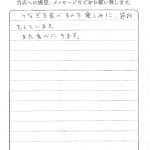 当店への感想、メッセージなどをお願い致します。
うなぎを食べるのを楽しみに、節約
をしています。
また食べにきます。